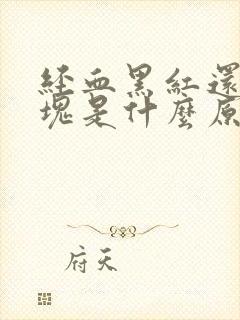 經血黑紅還
塊是什麼原
府天